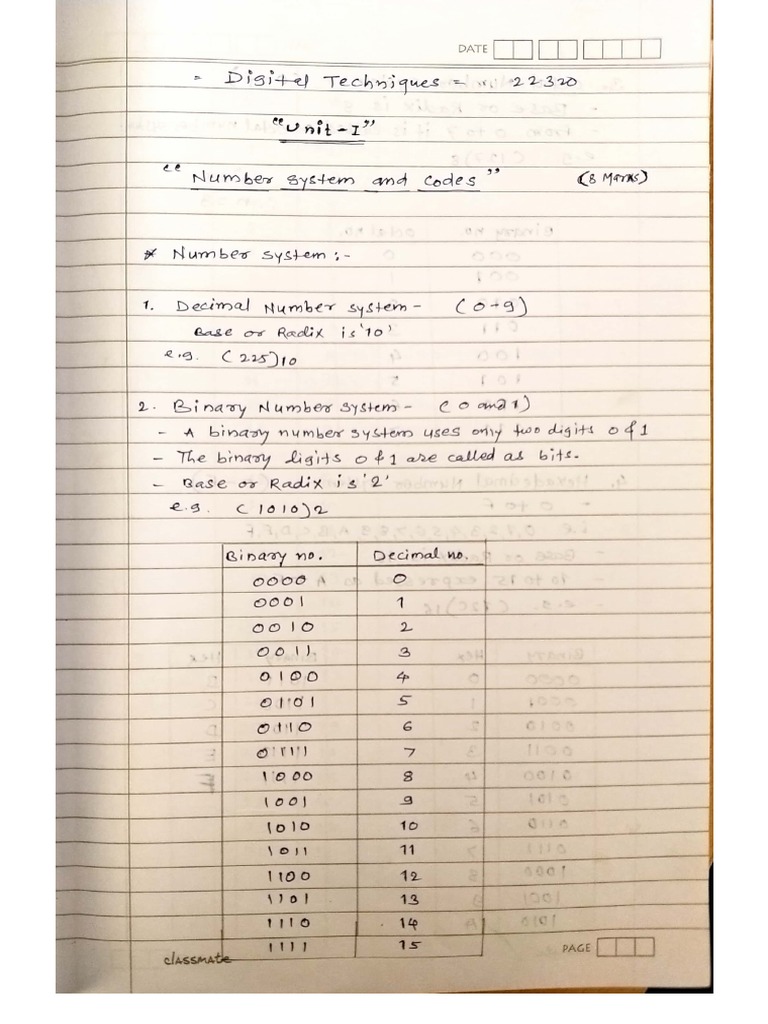 DATE
= Digital Techniques = 22320
"Unit-I"
"Number system and codes" (8 Marks)
* Number system :-
1. Decimal Number system - (0-9)
Base or Radix is '10'
e.g. (225)10
2. Binary Number system - (0 and 1)
- A binary number system uses only two digits 0 & 1
- The binary digits 0 & 1 are called as bits.
- Base or Radix is '2'
e.g. (1010)2
Binary no. Decimal no.
0000 0
0001 1
0010 2
0011 3
0100 4
0101 5
0110 6
0111 7
1000 8
1001 9
1010 10
1011 11
1100 12
1101 13
1110 14
1111 15
classmate PAGE